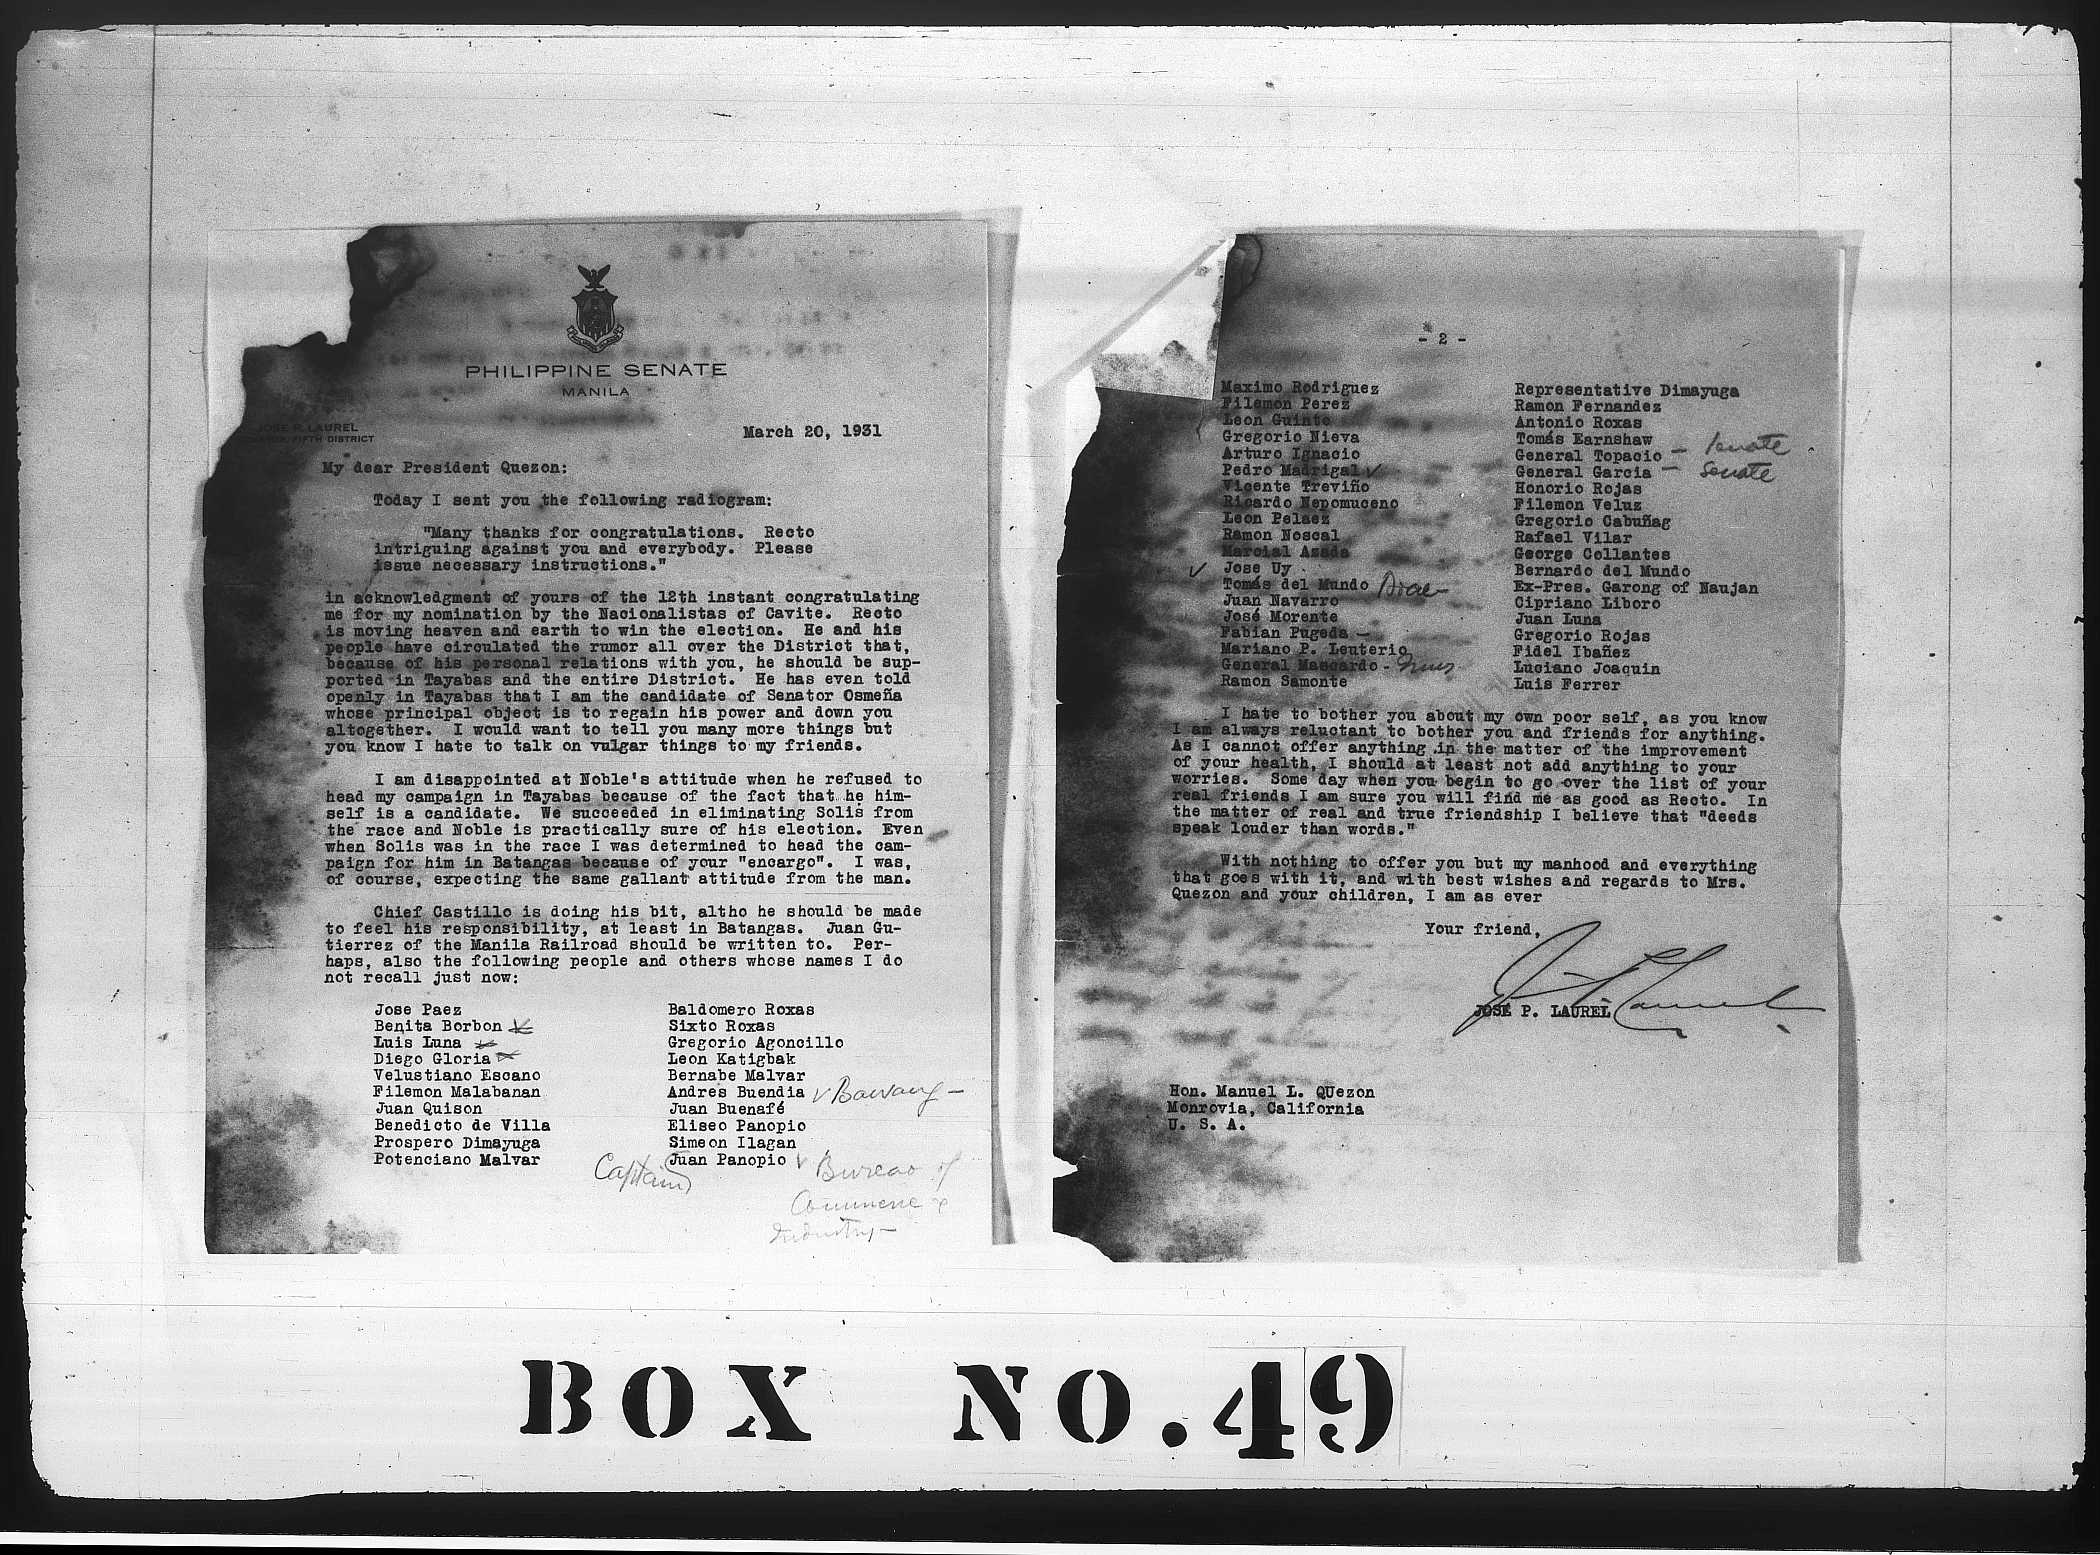 PHILIPPINE SENATE
MANILA
JOSE P. LAUREL
FIFTH DISTRICT
March 20, 1931
My dear President Quezon:
Today I sent you the following radiogram:
"Many thanks for congratulations. Recto
intriguing against you and everybody. Please
issue necessary instructions."
in acknowledgment of yours of the 12th instant congratulating
me for my nomination by the Nacionalistas of Cavite. Recto
is moving heaven and earth to win the election. He and his
people have circulated the rumor all over the District that,
because of his personal relations with you, he should be sup-
ported in Tayabas and the entire District. He has even told
openly in Tayabas that I am the candidate of Senator Osmeña
whose principal object is to regain his power and down you
altogether. I would want to tell you many more things but
you know I hate to talk on vulgar things to my friends.
I am disappointed at Noble's attitude when he refused to
head my campaign in Tayabas because of the fact that he him-
self is a candidate. We succeeded in eliminating Solis from
the race and Noble is practically sure of his election. Even
when Solis was in the race I was determined to head the cam-
paign for him in Batangas because of your "encargo". I was,
of course, expecting the same gallant attitude from the man.
Chief Castillo is doing his bit, altho he should be made
to feel his responsibility, at least in Batangas. Juan Gu-
tierrez of the Manila Railroad should be written to. Per-
haps, also the following people and others whose names I do
not recall just now:
Jose Paez
Benita Borbon
Luis Luna
Diego Gloria
Velustiano Escano
Filemon Malabanan
Juan Quison
Benedicto de Villa
Prospero Dimayuga
Potenciano Malvar
Baldomero Roxas
Sixto Roxas
Gregorio Agoncillo
Leon Katigbak
Bernabe Malvar
Andres Buendia ✓ Bawang -
Juan Buenafé
Eliseo Panopio
Simeon Ilagan
Captain Juan Panopio ✓ Bureao of
Commerce &
Industry -
- 2 -
Maximo Rodriguez
Filemon Perez
Leon Guinto
Gregorio Nieva
Arturo Ignacio
Pedro Madrigal ✓
Vicente Treviño
Ricardo Nepomuceno
Leon Pelaez
Ramon Noscal
Marcial Azada
✓ Jose Uy
Tomás del Mundo
Juan Navarro
José Morente
Fabian Pugeda -
Mariano P. Leuterio
General Mascardo -
Ramon Samonte
Representative Dimayuga
Ramon Fernandez
Antonio Roxas
Tomás Earnshaw
General Topacio - Senate
General Garcia - Senate
Honorio Rojas
Filemon Veluz
Gregorio Cabuñag
Rafael Vilar
George Collantes
Bernardo del Mundo
Ex-Pres. Garong of Naujan
Cipriano Liboro
Juan Luna
Gregorio Rojas
Fidel Ibañez
Luciano Joaquin
Luis Ferrer
I hate to bother you about my own poor self, as you know
I am always reluctant to bother you and friends for anything.
As I cannot offer anything in the matter of the improvement
of your health, I should at least not add anything to your
worries. Some day when you begin to go over the list of your
real friends I am sure you will find me as good as Recto. In
the matter of real and true friendship I believe that "deeds
speak louder than words."
With nothing to offer you but my manhood and everything
that goes with it, and with best wishes and regards to Mrs.
Quezon and your children, I am as ever
Your friend,
JOSE P. LAUREL
Hon. Manuel L. QUezon
Monrovia, California
U. S. A.
BOX NO. 49